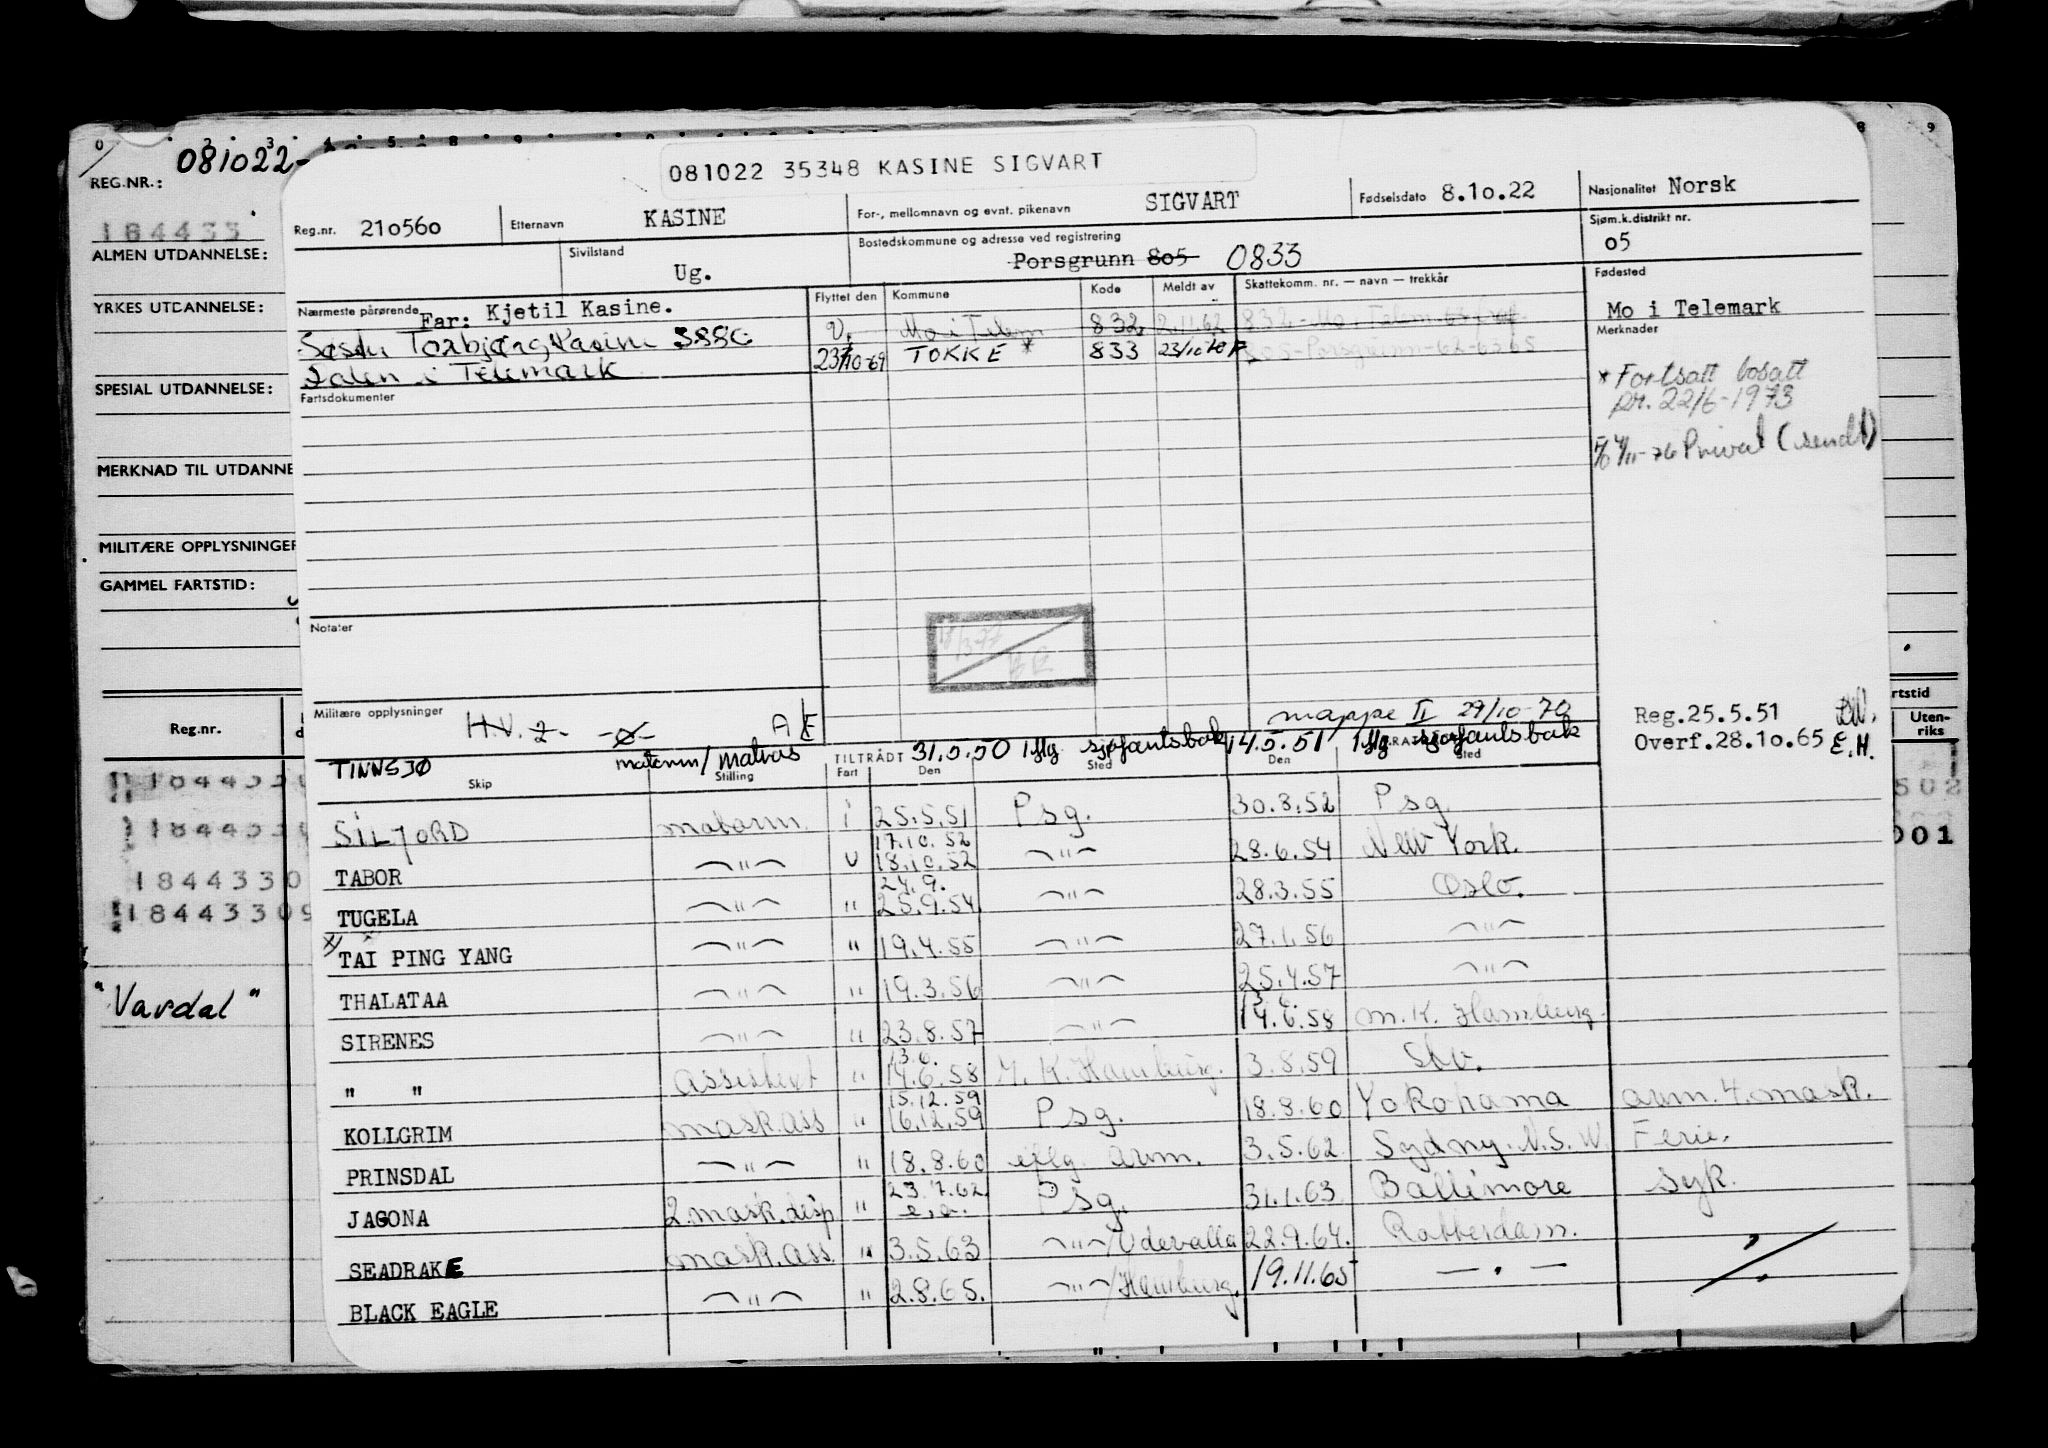 081022-
REG.NR.:
184433
ALMEN UTDANNELSE:
YRKES UTDANNELSE:
SPESIAL UTDANNELSE:
MERKNAD TIL UTDANNE
MILITÆRE OPPLYSNINGER
GAMMEL FARTSTID:
Reg.nr.
1844330
1844330
1844330
18443309
"Vardal"
081022 35348 KASINE SIGVART
Reg.nr. 21o56o Etternavn KASINE For-, mellomnavn og evnt. pikenavn SIGVART Fødselsdato 8.1o.22 Nasjonalitet Norsk
Sivilstand Ug. Bostedskommune og adresse ved registrering Porsgrunn 805 0833 Sjøm.k.distrikt nr. o5
Nærmeste pårørende Far: Kjetil Kasine. Flyttet den Kommune Kode Meldt av Skattekomm. nr. — navn — trekkår Fødested Mo i Telemark
Torbjørg Kasine 3880 V. Mo i Telem 832 2.11.62 832 - Mo i Telem
Dalen i Telemark 23/10-69 TOKKE * 833 23/10 70 805-Porsgrunn-62-6365
Merknader
* Fortsatt bosatt
pr. 22/6-1973
4/11-76 Privat (sendt)
Fartsdokumenter
Notater
Militære opplysninger H.V. 2- -Ø- A/E mappe II 29/10-70
Reg.25.5.51
Overf.28.1o.65 E.H.
TINNSJØ matros TILTRÅDT 31.5.50 iflg sjøfartsbok 14.5.51 iflg sjøfartsbok
Skip Stilling Fart Den Sted Den Sted
SILJORD i 25.5.51 Psg. 30.8.52 Psg.
TABOR —"— U 17.10.52 18.10.52 —"— 28.6.54 New York.
TUGELA —"— " 24.9. 25.9.54 —"— 28.3.55 Oslo.
x/ TAI PING YANG —"— " 19.4.55 —"— 27.1.56 —"—
THALATAA —"— " 19.3.56 —"— 25.4.57 —"—
SIRENES —"— " 23.8.57 —"— 13.6. 14.6.58 m.K. Hamburg
" " assistent " 13.6. 14.6.58 K. Hamburg. 3.8.59
KOLLGRIM mask.ass " 15.12.59 16.12.59 Psg. 18.8.60 Yokohama avm. 4. mask.
PRINSDAL —"— " 18.8.60 iflg. avm. 3.5.62 Sydny. N.S.W Ferie.
JAGONA 2.mask.disp " 23.7.62 e.o. Psg. 31.1.63 Baltimore syk.
SEADRAKE mask.ass. " 3.5.63 —"—/Udevalla 22.9.64. Rotterdam.
BLACK EAGLE —"— " 2.8.65. —"—/Hamburg. 19.11.65 —"—
rtstid
Uten-
riks
502
001